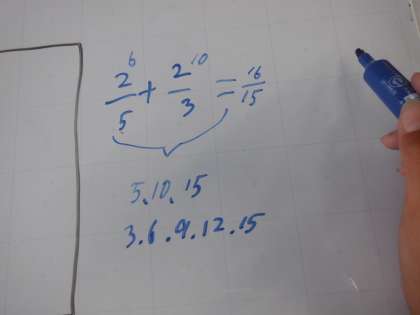 2⁶/5 + 2¹⁰/3 = 16/15
5.10.15
3.6.9.12.15